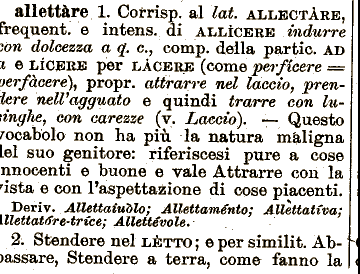 allettàre 1. Corrisp. al lat. ALLECTÀRE,
frequent. e intens. di ALLÍCERE indurre
con dolcezza a q. c., comp. della partic. AD
a e LÍCERE per LÀCERE (come perfícere =
perfàcere), propr. attrarre nel laccio, pren-
dere nell'agguato e quindi trarre con lu-
singhe, con carezze (v. Laccio). — Questo
vocabolo non ha più la natura maligna
del suo genitore: riferiscesi pure a cose
innocenti e buone e vale Attrarre con la
vista e con l'aspettazione di cose piacenti.
Deriv. Allettaiuòlo; Allettaménto; Allettatíva;
Allettatóre-tríce; Allettévole.
2. Stendere nel LÈTTO; e per similit. Ab-
bassare, Stendere a terra, come fanno la